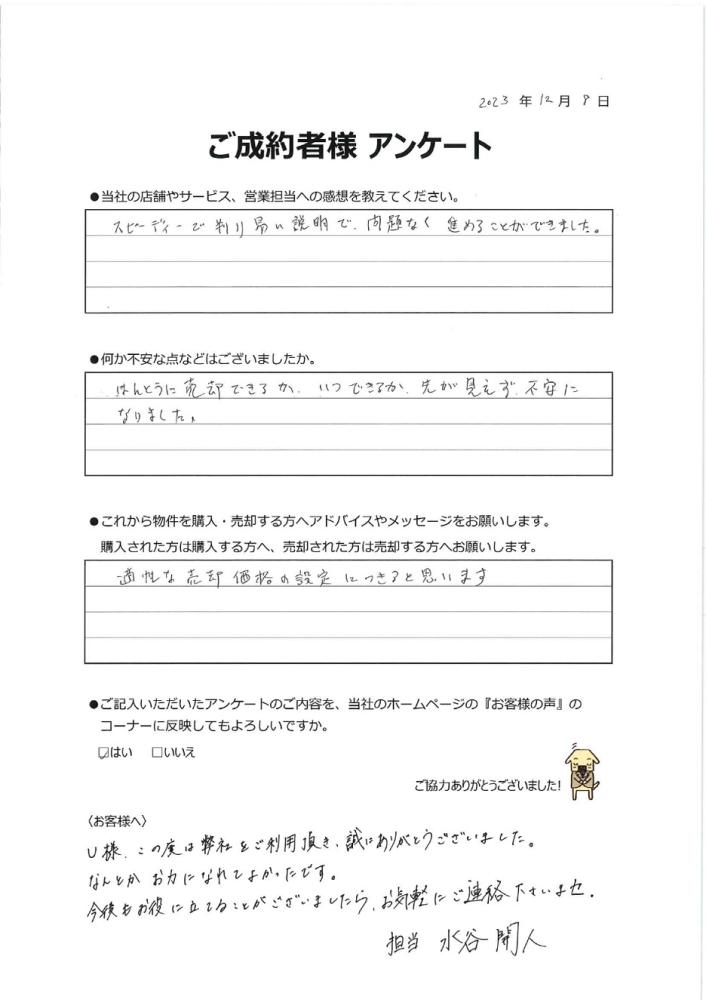 2023 年 12 月 9 日
ご成約者様 アンケート
●当社の店舗やサービス、営業担当への感想を教えてください。
スピーディーで判り易い説明で、問題なく 進めることができました。
●何か不安な点などはございましたか。
ほんとうに売却できるか、いつできるか、先が見えず、不安に
なりました。
●これから物件を購入・売却する方へアドバイスやメッセージをお願いします。
購入された方は購入する方へ、売却された方は売却する方へお願いします。
適性な売却価格の設定につきると思います
●ご記入いただいたアンケートのご内容を、当社のホームページの『お客様の声』の
コーナーに反映してもよろしいですか。
☑はい □いいえ
ご協力ありがとうございました!
〈お客様へ〉
U様、この度は弊社をご利用頂き、誠にありがとうございました。
なんとか お力になれてよかったです。
今後もお役に立てることがございましたら、お気軽にご連絡下さいませ。
担当 水谷 開人